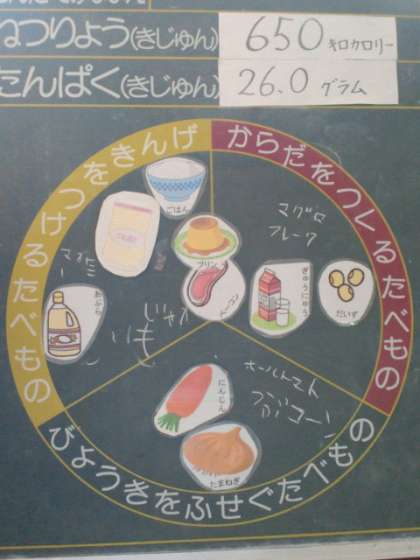 ねつりょう(きじゅん) 650 キロカロリー
たんぱく(きじゅん) 26.0 グラム
げんきをつけるたべもの
からだをつくるたべもの
びょうきをふせぐたべもの
ごはん
プリン
ベーコン
マグロ
フレーク
ぎゅうにゅう
だいず
あぶら
じゃが
いも
ホールトマト
つぶコーン
にんじん
たまねぎ